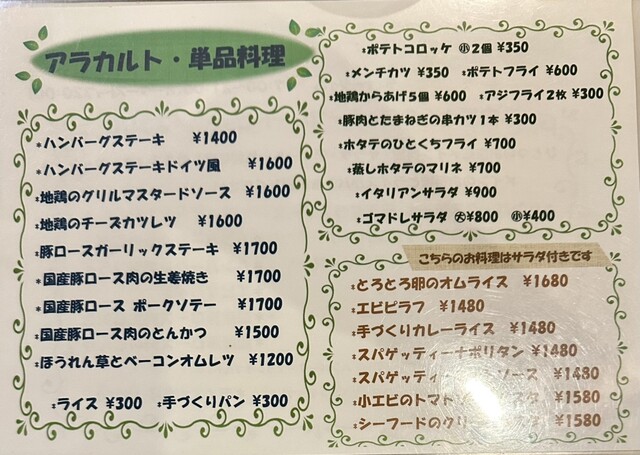 アラカルト・単品料理
*ハンバーグステーキ ¥1400
*ハンバーグステーキドイツ風 ¥1600
*地鶏のグリルマスタードソース ¥1600
*地鶏のチーズカツレツ ¥1600
*豚ロースガーリックステーキ ¥1700
*国産豚ロース肉の生姜焼き ¥1700
*国産豚ロース ポークソテー ¥1700
*国産豚ロース肉のとんかつ ¥1500
*ほうれん草とベーコンオムレツ ¥1200
*ライス ¥300 *手づくりパン ¥300
*ポテトコロッケ ㊙小2個 ¥350
*メンチカツ ¥350 *ポテトフライ ¥600
*地鶏からあげ5個 ¥600 *アジフライ2枚 ¥300
*豚肉とたまねぎの串カツ1本 ¥300
*ホタテのひとくちフライ ¥700
*蒸しホタテのマリネ ¥700
*イタリアンサラダ ¥900
*ゴマドレサラダ 大¥800 小¥400
こちらのお料理はサラダ付きです
*とろとろ卵のオムライス ¥1680
*エビピラフ ¥1480
*手づくりカレーライス ¥1480
*スパゲッティーナポリタン ¥1480
*スパゲッティ ソース ¥1480
*小エビのトマト スタ ¥1580
*シーフードのクリー ¥1580